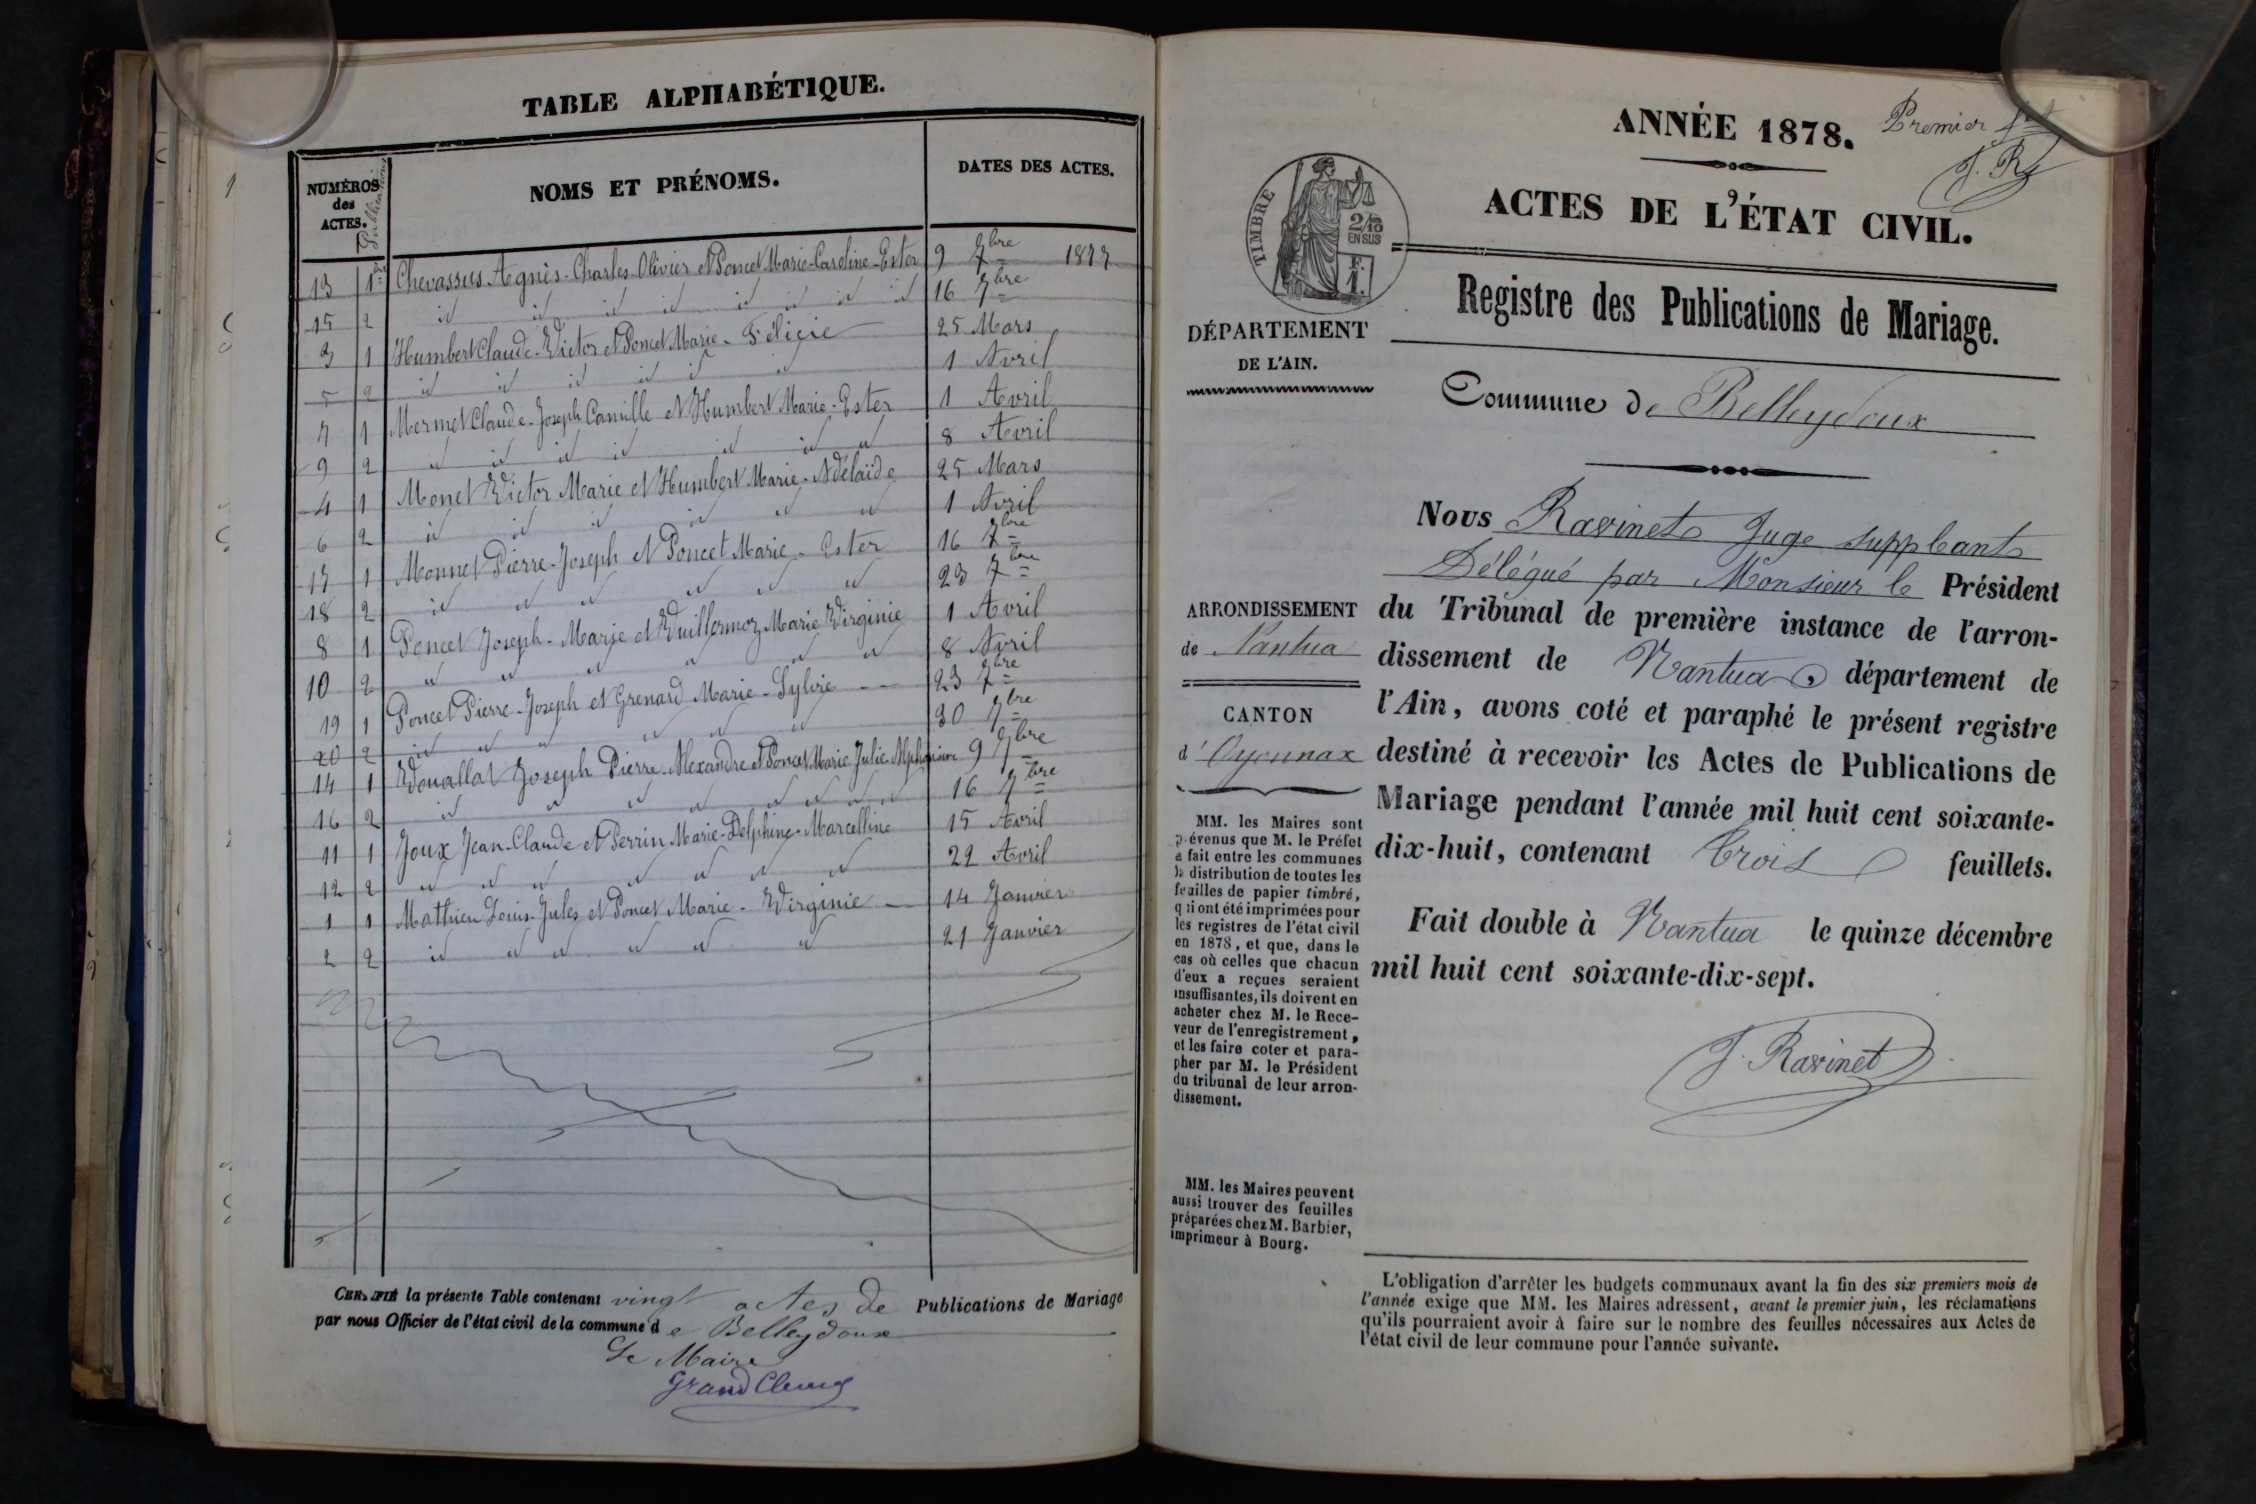 TABLE ALPHABÉTIQUE.
NUMÉROS des ACTES. Publications NOMS ET PRÉNOMS. DATES DES ACTES.
13 1re Chevassus Agnès-Charles-Olivier et Poncet Marie-Caroline-Ester 9 7bre 1877
15 2 id id id id id id id id 16 7bre
3 1 Humbert Claude-Victor et Poncet Marie-Félicie 25 Mars
5 2 id id id id id id 1 Avril
7 1 Mermet Claude-Joseph Camille et Humbert Marie-Ester 1 Avril
9 2 id id id id id id id 8 Avril
4 1 Monet Victor Marie et Humbert Marie-Adélaïde 25 Mars
6 2 id id id id id id 1 Avril
17 1 Monnet Pierre-Joseph et Poncet Marie-Ester 16 7bre
18 2 id id id id id id 23 7bre
8 1 Poncet Joseph-Marie et Vuillermoz Marie Virginie 1 Avril
10 2 id id id id id id 8 Avril
19 1 Poncet Pierre-Joseph et Grenard Marie-Sylvie 23 7bre
20 2 id id id id id id 30 7bre
14 1 Vouallat Joseph Pierre-Alexandre et Poncet Marie Julie Alphonsine 9 7bre
16 2 id id id id id id id id 16 7bre
11 1 Joux Jean-Claude et Perrin Marie-Delphine-Marcelline 15 Avril
12 2 id id id id id id id 22 Avril
1 1 Mathieu Louis-Jules et Poncet Marie-Virginie 14 Janvier
2 2 id id id id id id 21 Janvier
CERTIFIÉ la présente Table contenant vingt actes de Publications de Mariage
par nous Officier de l'état civil de la commune de Belleydoux
Le Maire
GrandClémg
Premier fet
J. R
ANNÉE 1878.
ACTES DE L'ÉTAT CIVIL.
TIMBRE
2/10
EN SUS
F.
1.
Registre des Publications de Mariage.
DÉPARTEMENT
DE L'AIN.
Commune de Belleydoux
Nous Ravinet Juge suppléant
Délégué par Monsieur le Président
du Tribunal de première instance de l'arron-
dissement de Nantua, département de
l'Ain, avons coté et paraphé le présent registre
destiné à recevoir les Actes de Publications de
Mariage pendant l'année mil huit cent soixante-
dix-huit, contenant trois feuillets.
Fait double à Nantua le quinze décembre
mil huit cent soixante-dix-sept.
J. Ravinet
ARRONDISSEMENT
de Nantua
CANTON
d'Oyonnax
MM. les Maires sont
prévenus que M. le Préfet
a fait entre les communes
la distribution de toutes les
feuilles de papier timbré,
qui ont été imprimées pour
les registres de l'état civil
en 1878, et que, dans le
cas où celles que chacun
d'eux a reçues seraient
insuffisantes, ils doivent en
acheter chez M. le Rece-
veur de l'enregistrement,
et les faire coter et para-
pher par M. le Président
du tribunal de leur arron-
dissement.
MM. les Maires peuvent
aussi trouver des feuilles
préparées chez M. Barbier,
imprimeur à Bourg.
L'obligation d'arrêter les budgets communaux avant la fin des six premiers mois de
l'année exige que MM. les Maires adressent, avant le premier juin, les réclamations
qu'ils pourraient avoir à faire sur le nombre des feuilles nécessaires aux Actes de
l'état civil de leur commune pour l'année suivante.